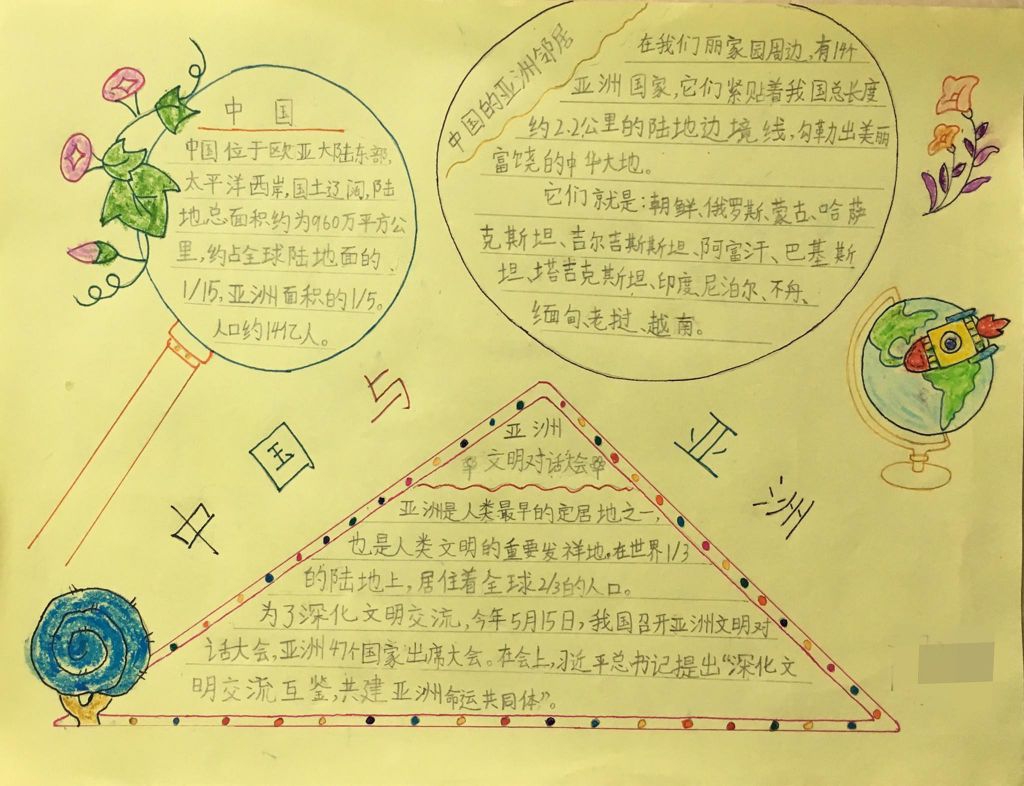 中国
中国位于欧亚大陆东部,
太平洋西岸,国土辽阔,陆
地总面积约为960万平方公
里,约占全球陆地面的、
1/15,亚洲面积的1/5。
人口约14亿人。
中国的亚洲邻居
在我们丽家园周边,有14个
亚洲国家,它们紧贴着我国总长度
约2.2公里的陆地边境线,勾勒出美丽
富饶的中华大地。
它们就是:朝鲜、俄罗斯、蒙古、哈萨
克斯坦、吉尔吉斯斯坦、阿富汗、巴基斯
坦、塔吉克斯坦、印度、尼泊尔、不丹、
缅甸、老挝、越南。
中国与亚洲
亚洲
文明对话大会
亚洲是人类最早的定居地之一,
也是人类文明的重要发祥地。在世界1/3
的陆地上,居住着全球2/3的人口。
为了深化文明交流,今年5月15日,我国召开亚洲文明对
话大会,亚洲47个国家出席大会。在会上,习近平总书记提出“深化文
明交流互鉴,共建亚洲命运共同体”。